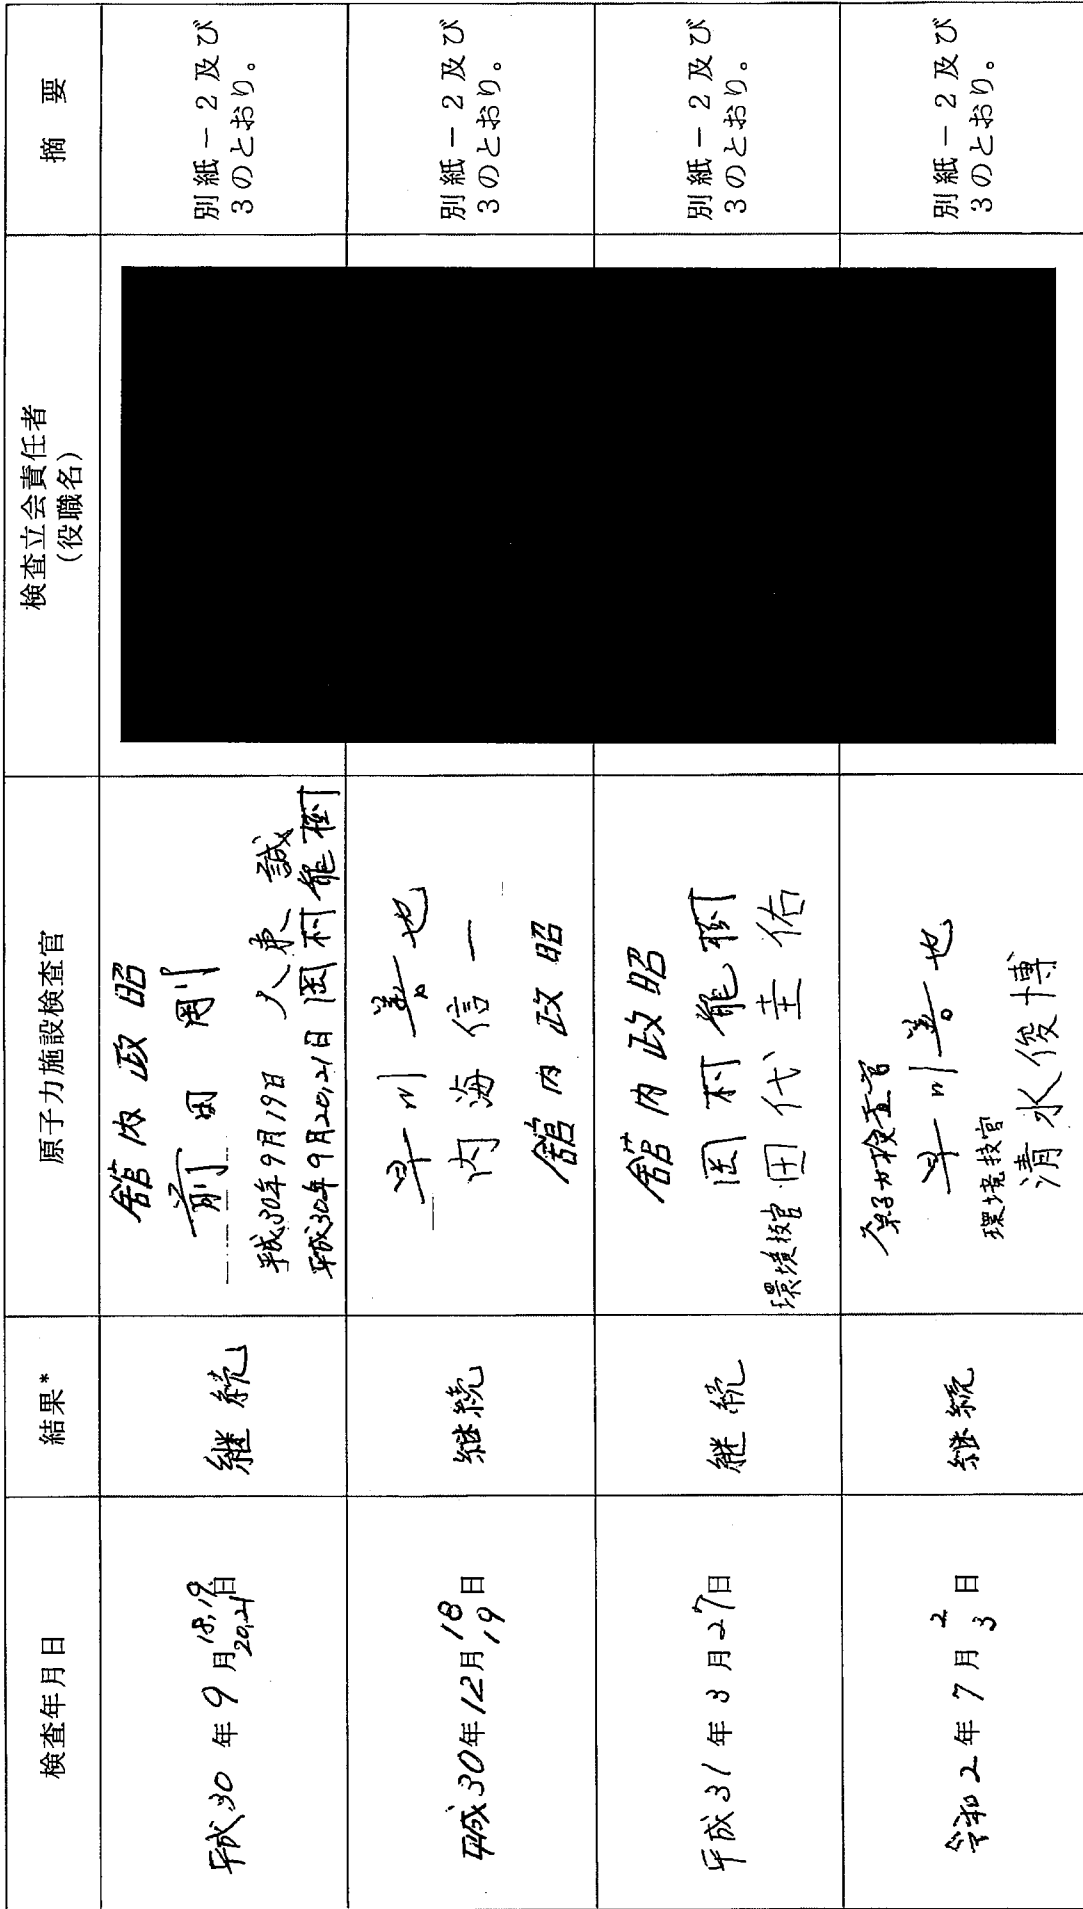 検査年月日
結果*
原子力施設検査官
検査立会責任者
(役職名)
摘 要
平成30年9月18,19
20,21日
継続
舘内政昭
前田 剛
平成30年9月19日 大東 誠
平成30年9月20,21日 岡村龍樹
別紙-2及び
3のとおり。
平成30年12月18
19日
継続
早川善也
内海信一
舘内政昭
別紙-2及び
3のとおり。
平成31年3月27日
継続
舘内政昭
岡村龍樹
環境技官 田代圭佑
別紙-2及び
3のとおり。
令和2年7月2
3日
継続
原子力検査官
早川善也
環境技官
清水俊博
別紙-2及び
3のとおり。